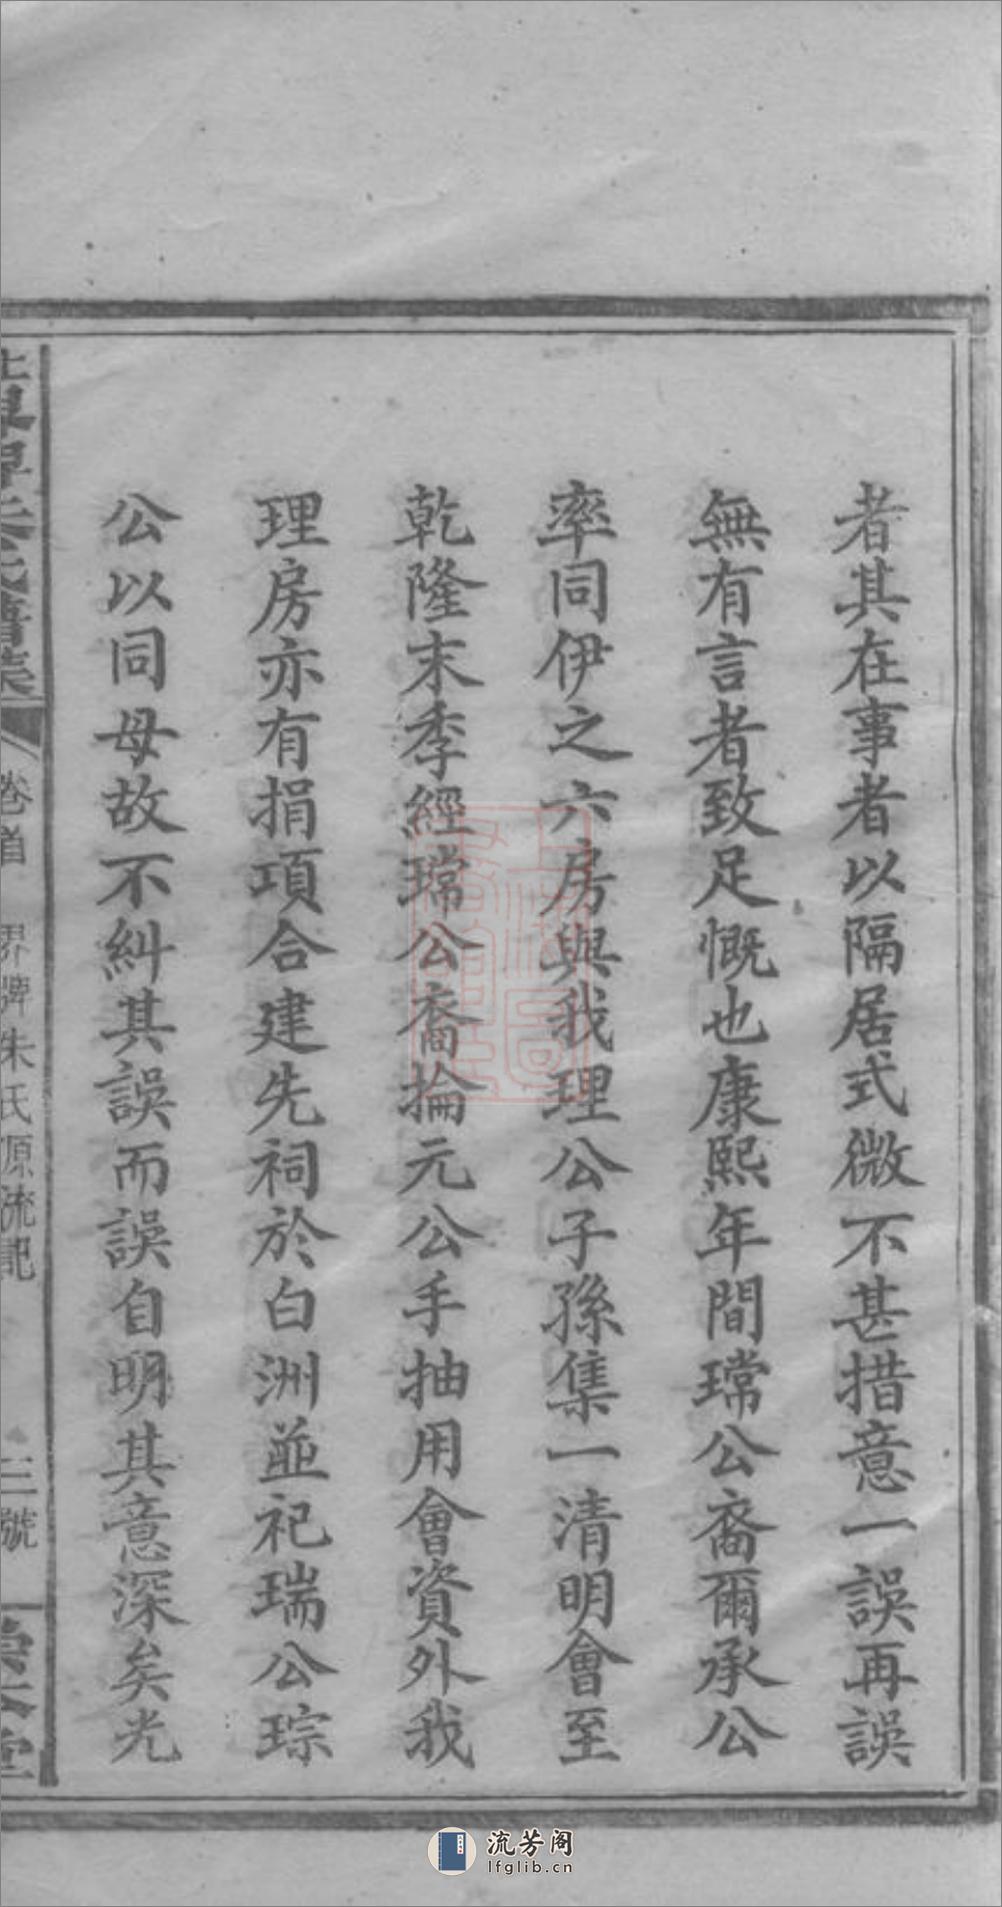 者其在事者以隔居式微不甚措意一誤再誤
無有言者致足慨也康熙年間璫公裔爾承公
率同伊之六房與我理公子孫集一清明會至
乾隆末季經璫公裔掄元公手抽用會資外我
理房亦有捐項合建先祠於白洲並祀瑞公琮
公以同母故不糾其誤而誤自明其意深矣光
卷首 界牌朱氏原流記 三號
流芳阁
lfglib.cn